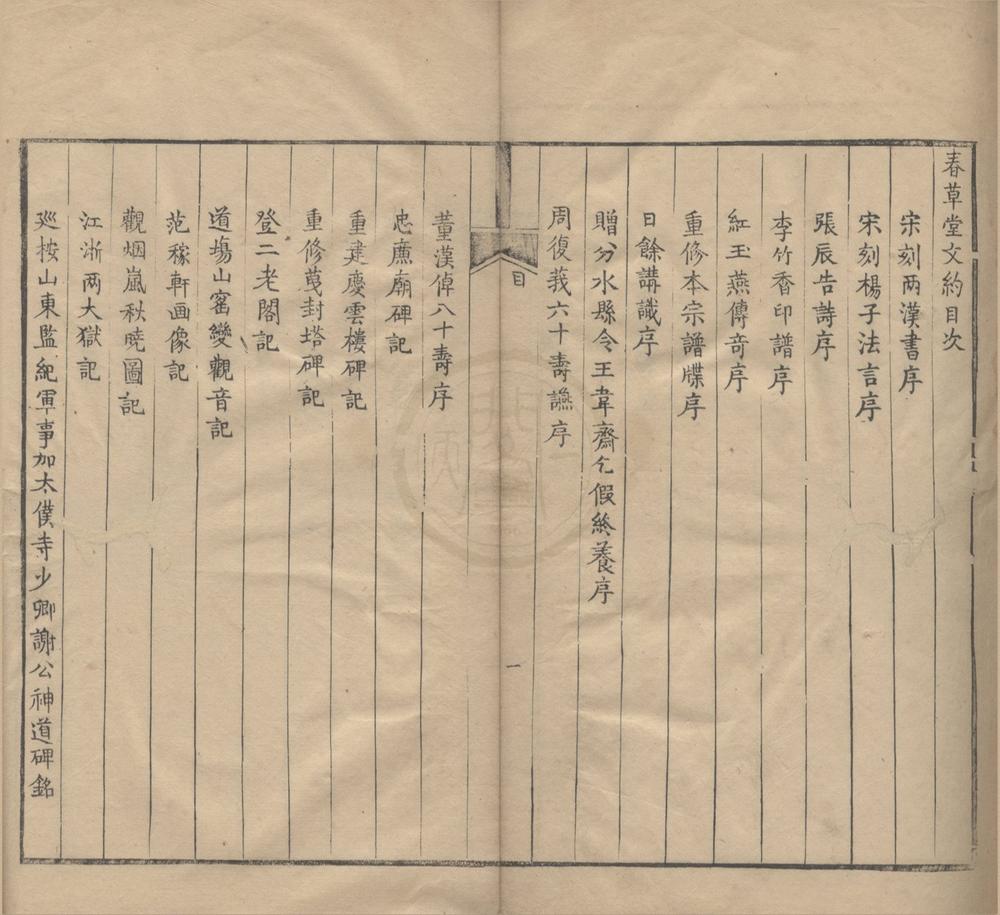 春草堂文約目次
宋刻两漢書序
宋刻楊子法言序
張辰告詩序
李竹香印譜序
紅玉燕傳奇序
重修本宗譜牒序
日餘講識序
贈分水縣令王韋齋乞假終養序
周復莪六十壽讌序
目
一
董漢倬八十壽序
忠廉廟碑記
重建慶雲樓碑記
重修葑塔碑記
登二老閣記
道塲山窰變觀音記
范稼軒画像記
觀烟嵐秋曉圖記
江浙两大獄記
廵按山東監紀軍事加太僕寺少卿謝公神道碑銘